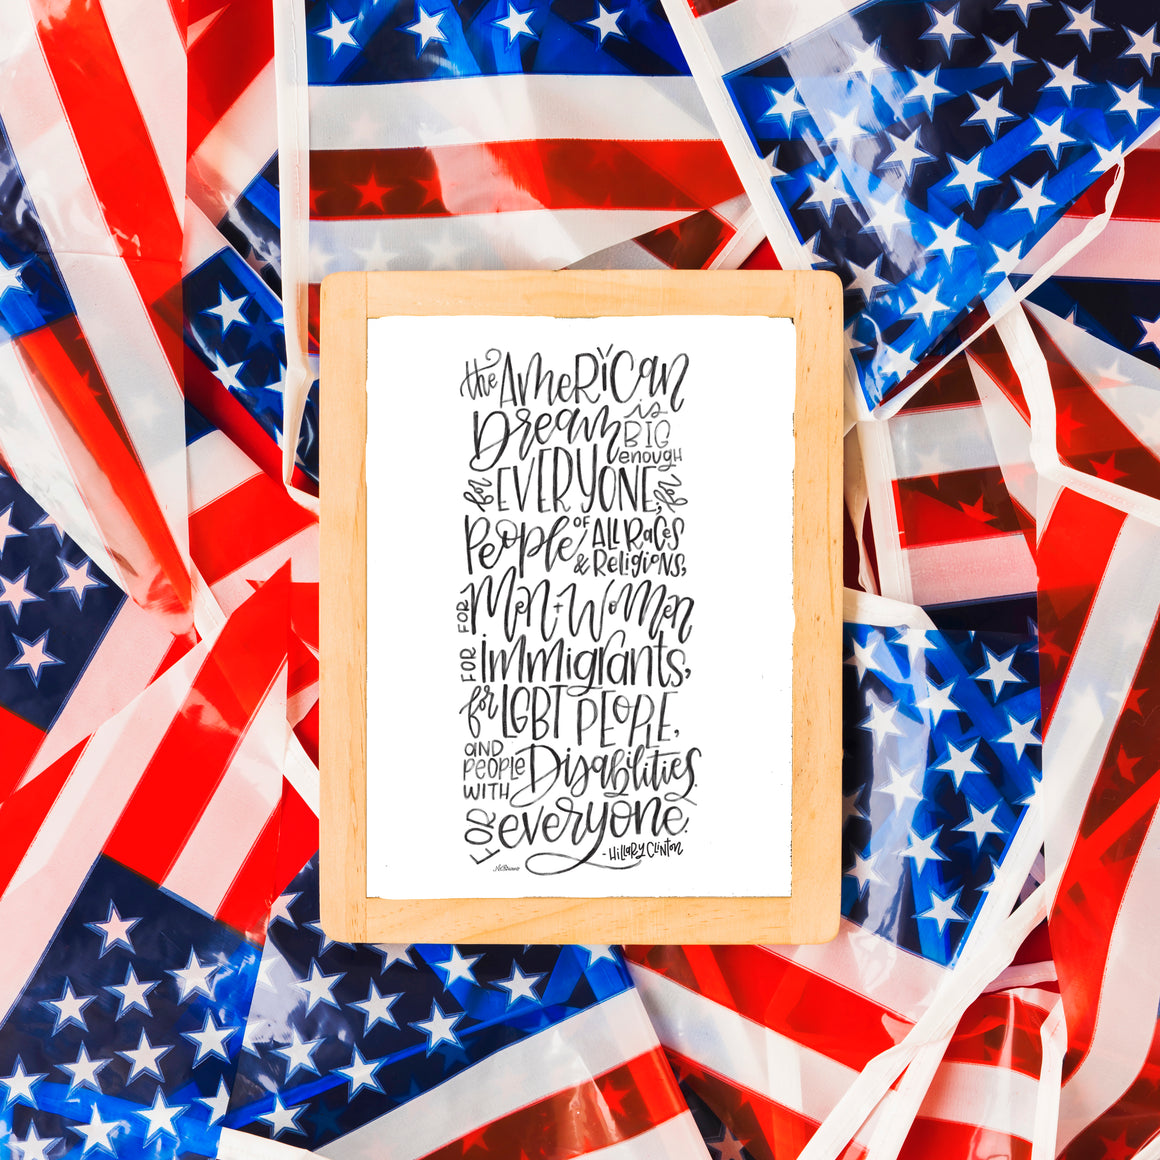 the AMERICAN
Dream is BIG enough
for EVERYONE, for
People OF All RaCes & Religions,
FOR Men + Women
FOR immigrants,
for LGBT PEOPLE,
AND PEOPLE WITH Disabilities.
FOR everyone.
-Hillary Clinton